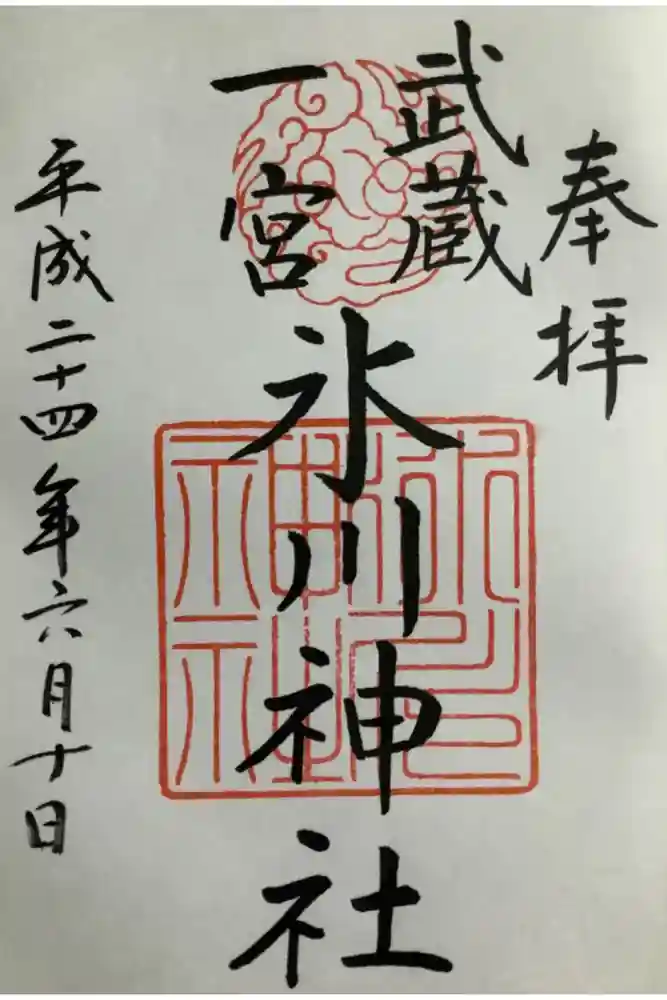 奉拝
武蔵
一宮
氷川神社
平成二十四年六月十日
氷川
神社